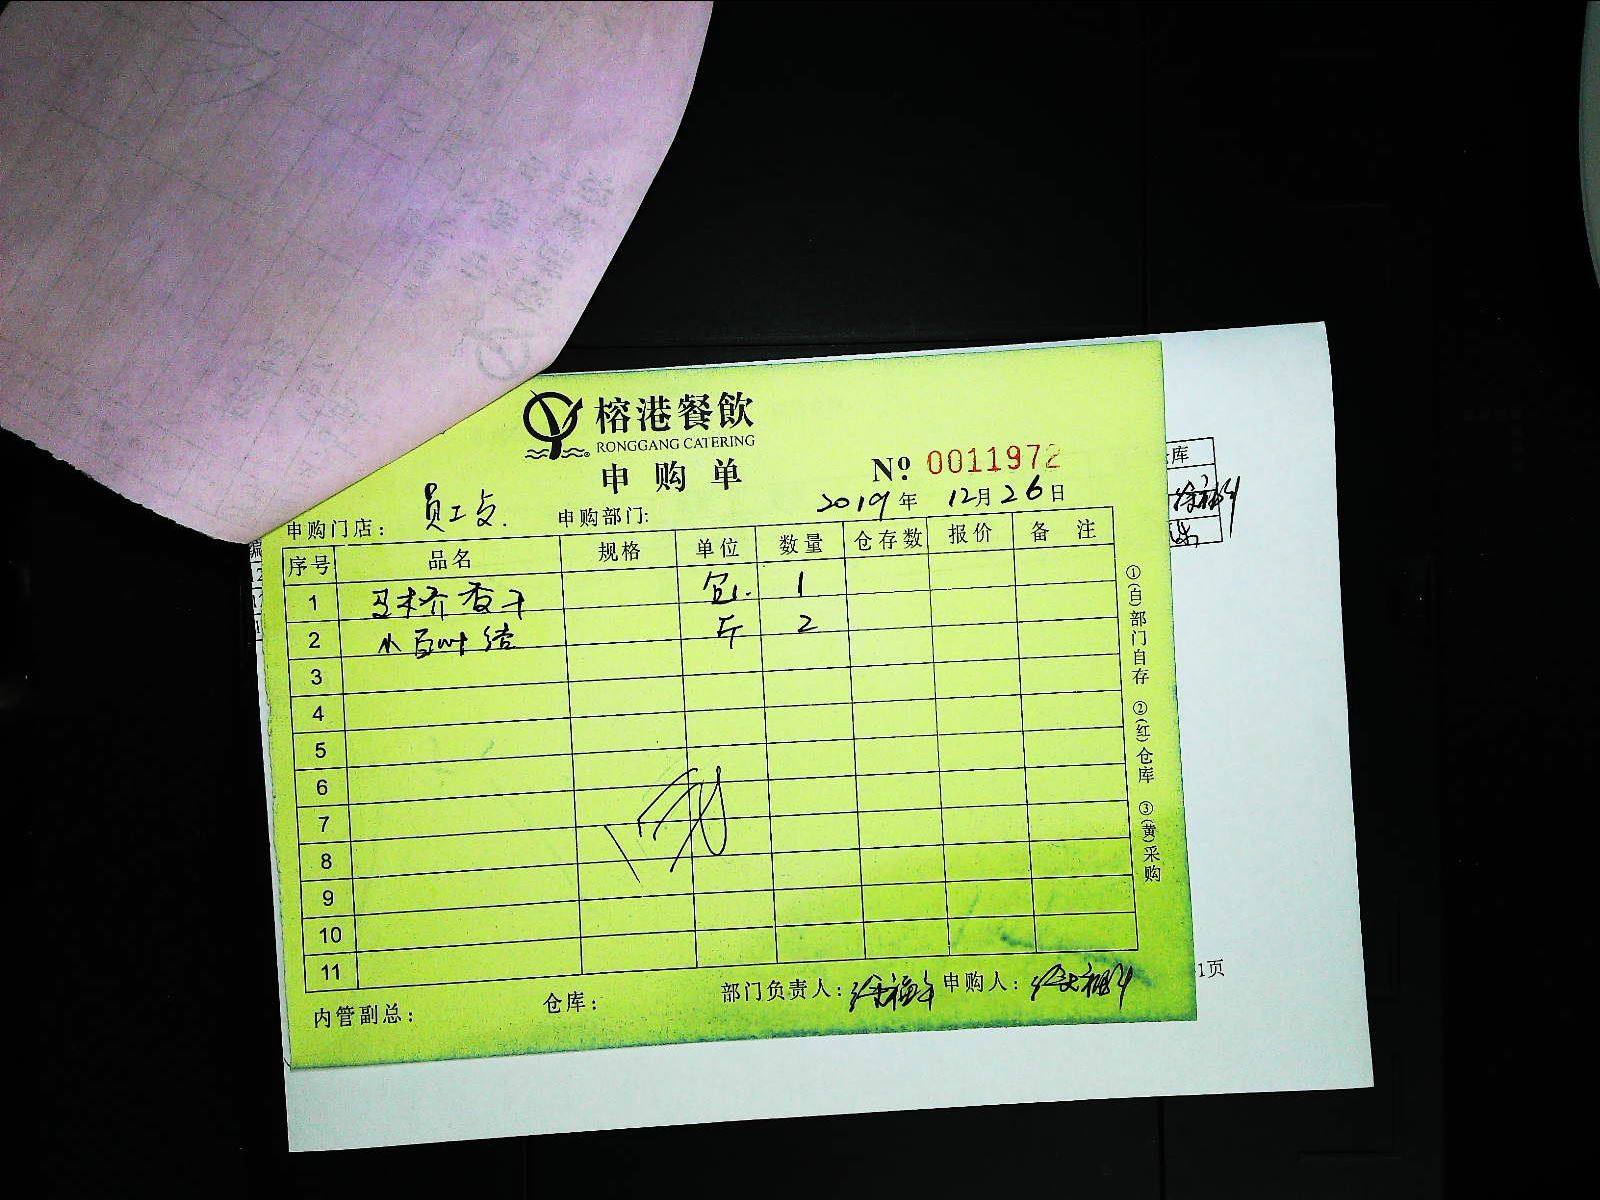 榕港餐飲
RONGGANG CATERING
申购单
№ 0011972
2019年 12月26日
申购门店： 员工 申购部门:
序号 品名 规格 单位 数量 仓存数 报价 备 注
1 香干 包 1
2 小百叶结 斤 2
3
4
5
6
7
8
9
10
11
内管副总： 仓库： 部门负责人： 申购人：
①(白)部门自存 ②(红)仓库 ③(黄)采购
库
1页